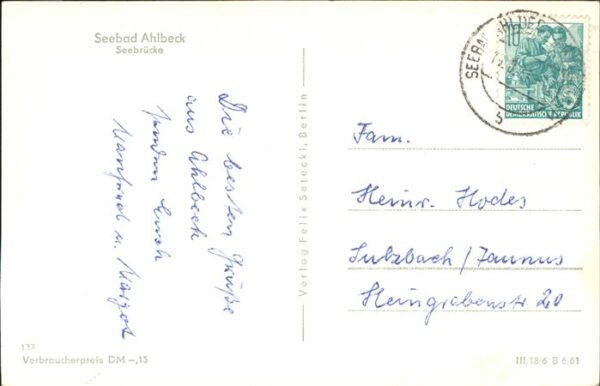 Seebad Ahlbeck
Seebrücke
Die besten Grüße
aus Ahlbeck
senden Euch
Manfred u. Margot
137
Verbraucherpreis DM -,15
Verlag Felix Setecki, Berlin
SEEBAD AHLBECK
10
DEUTSCHE
DEMOKRATISCHE REPUBLIK
Fam.
Heinr. Hodes
Sulzbach/Taunus
Heingrabenstr. 20
III/18/6 B 6/61